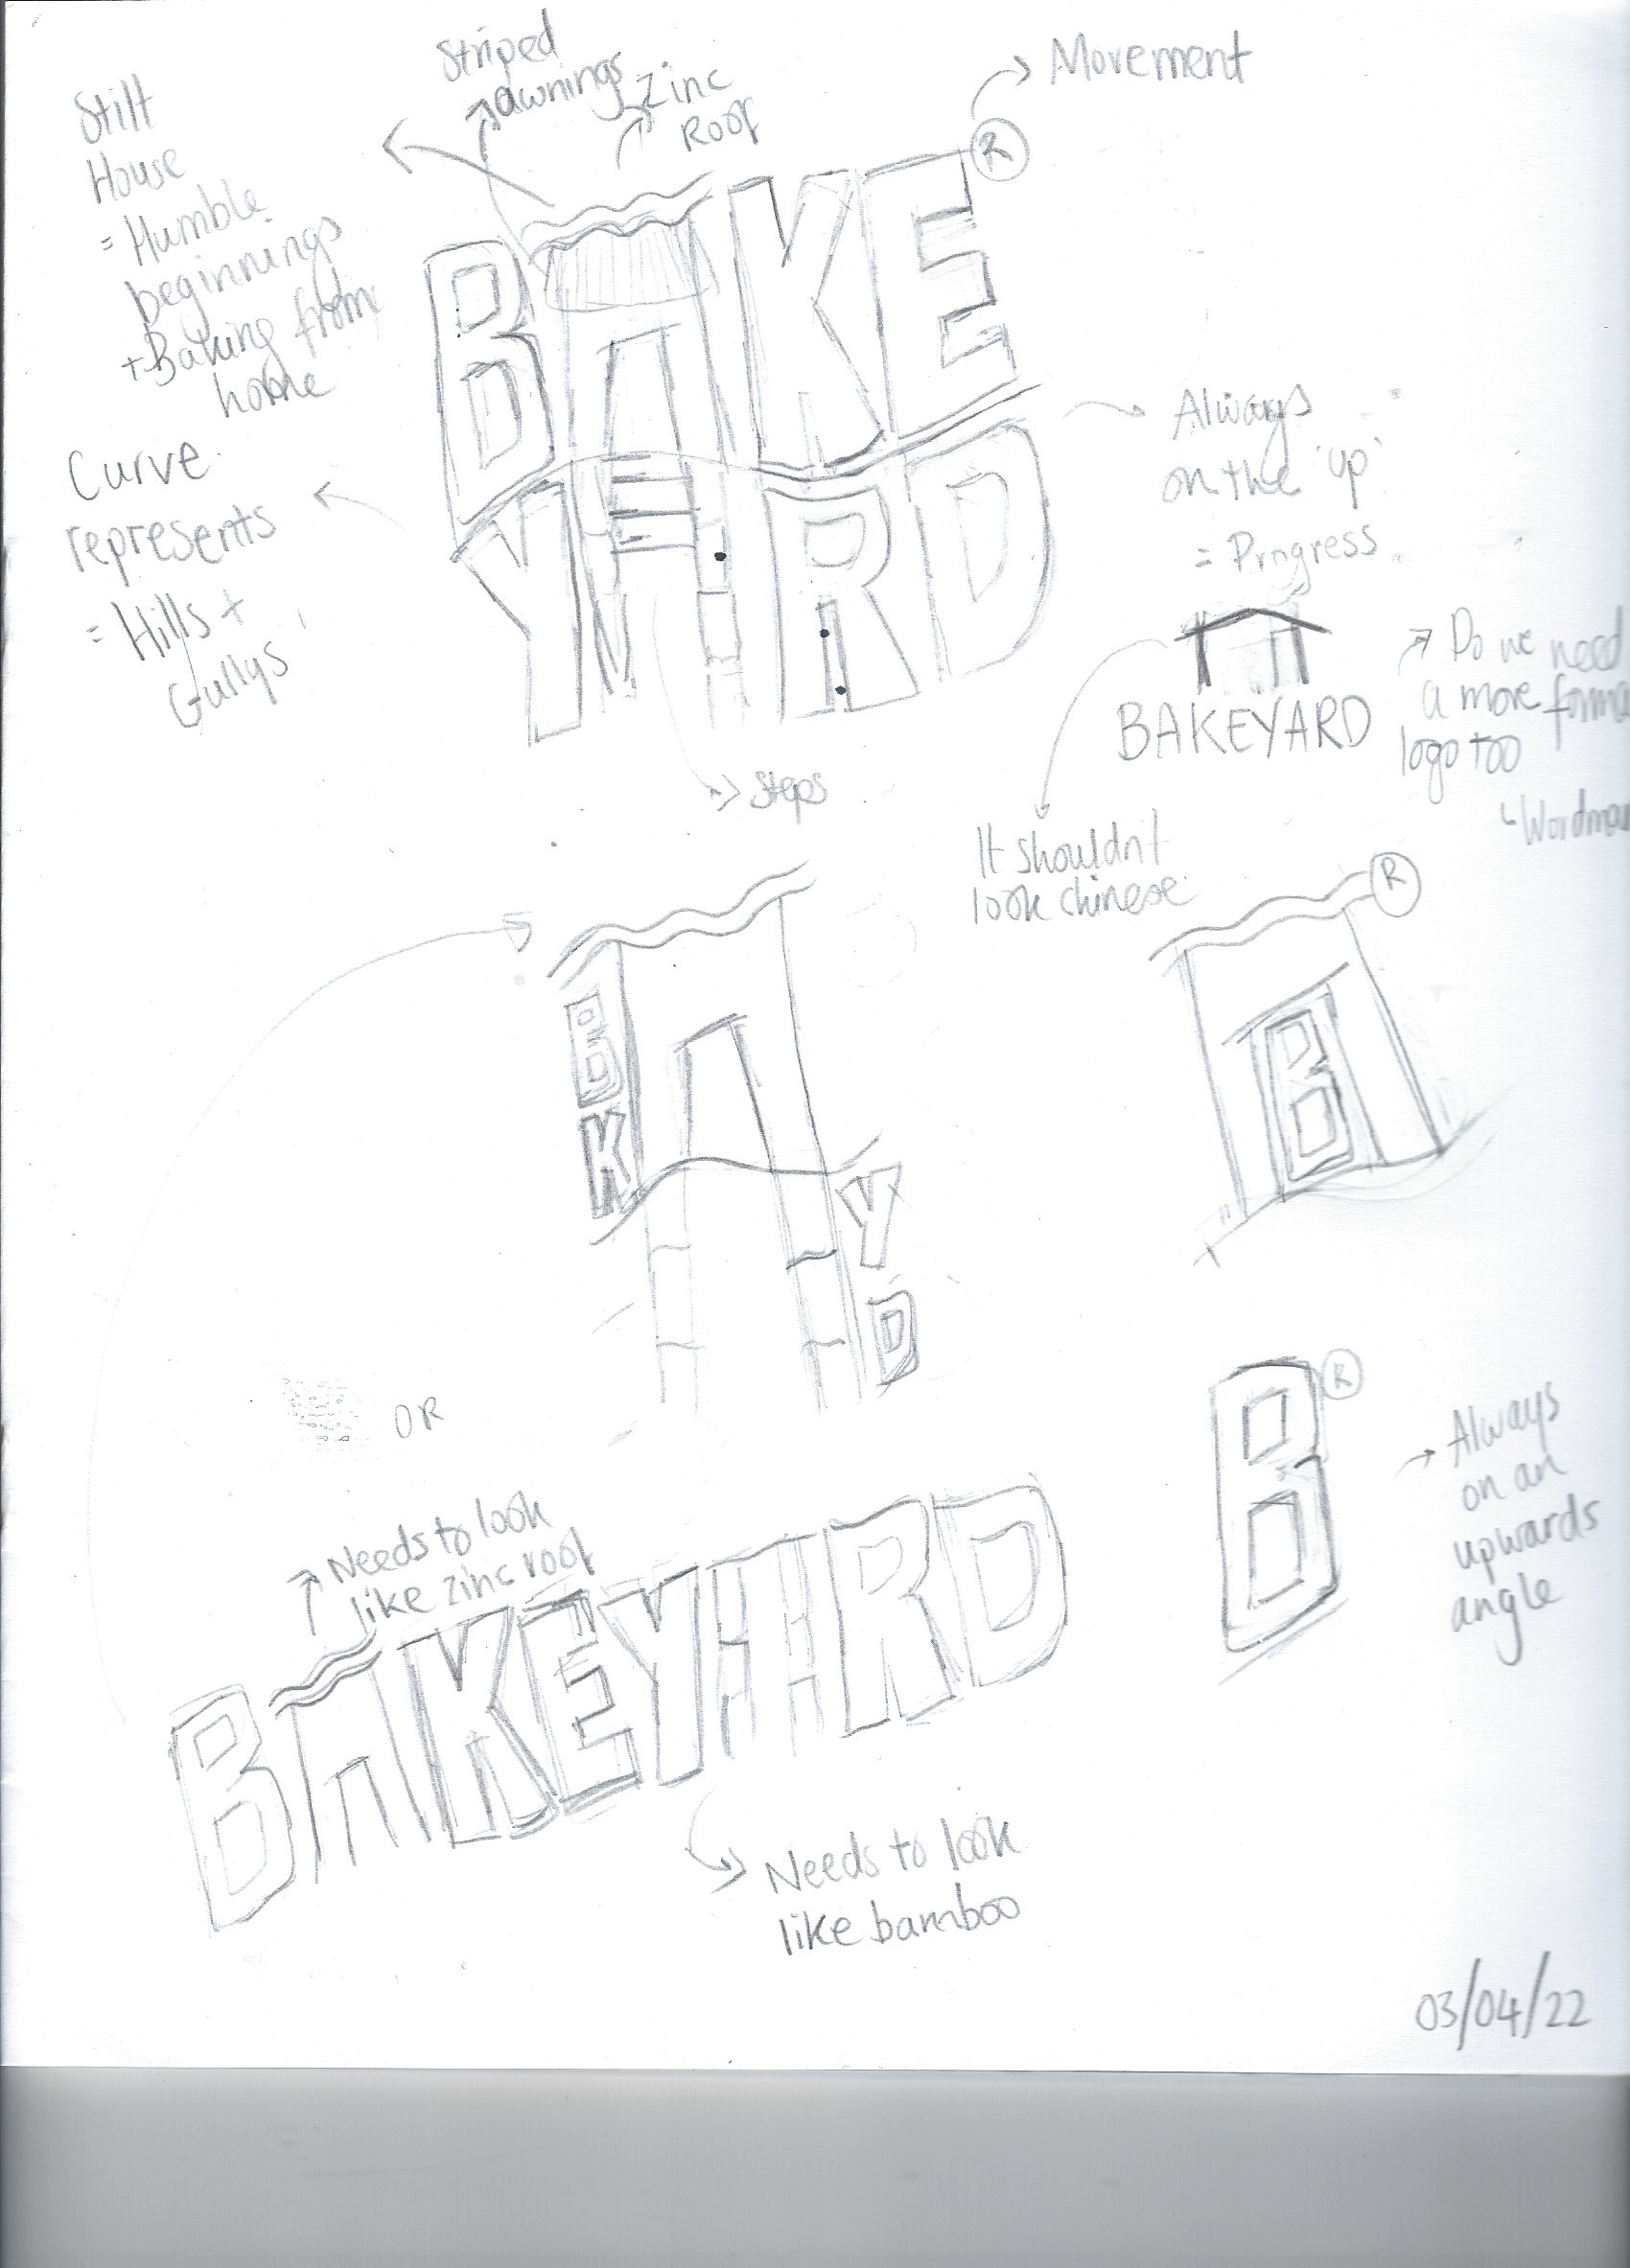 Stilt
House
= Humble
beginnings
+ Baking from
home
Striped
awnings
Zinc
Roof
Movement
R
BAKE
YARD
Curve
represents
= Hills +
Gullys
Always
on the 'up'
= Progress
Steps
BAKEYARD
Do we need
a more forma
logo too
Wordma
It shouldn't
look chinese
B
K
Y
D
R
B
OR
R
B
Always
on an
upwards
angle
Needs to look
like zinc roof
BAKEYARD
Needs to look
like bamboo
03/04/22